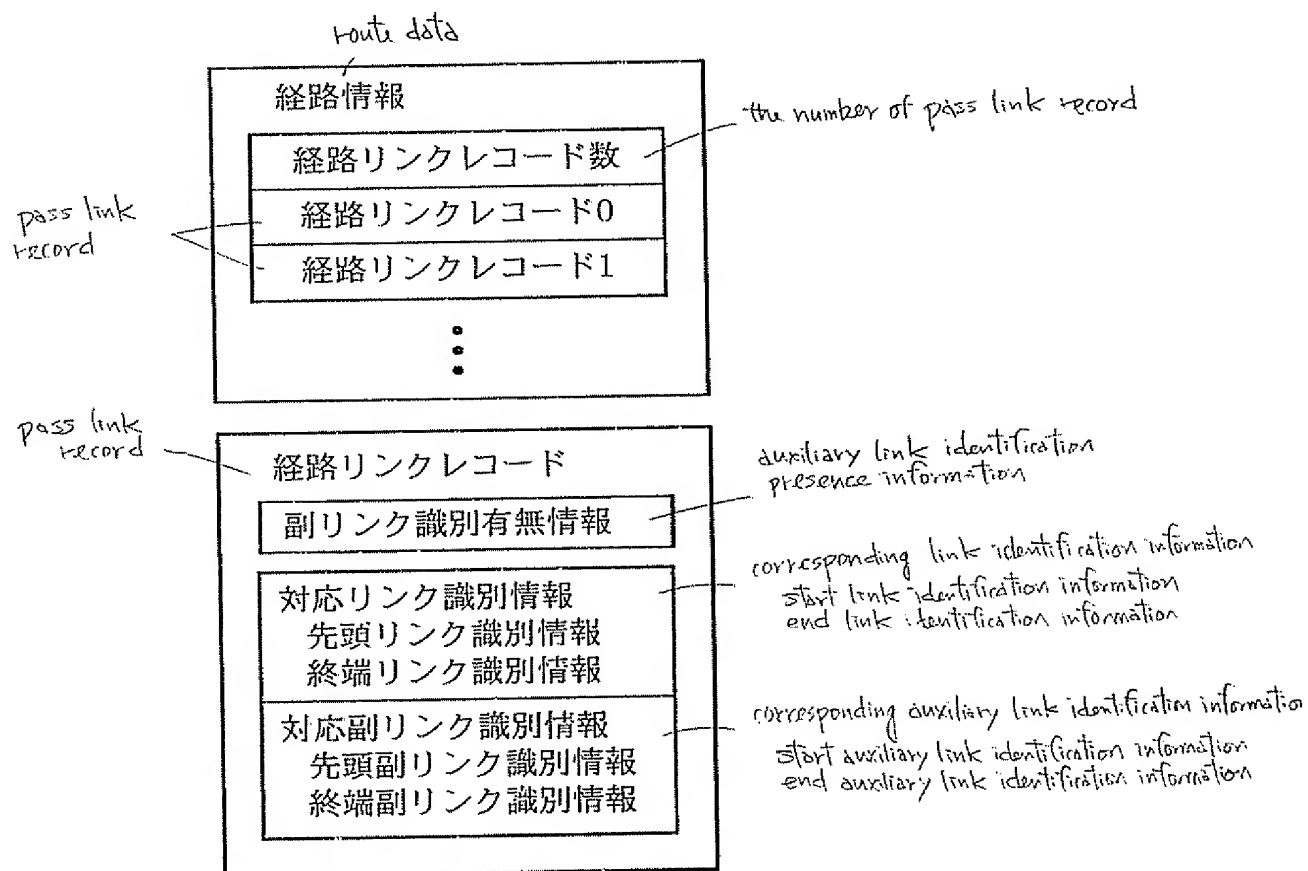 route data
経路情報
the number of pass link record
経路リンクレコード数
pass link
record
経路リンクレコード0
経路リンクレコード1
pass link
record
経路リンクレコード
auxiliary link identification
presence information
副リンク識別有無情報
corresponding link identification information
start link identification information
end link identification information
対応リンク識別情報
先頭リンク識別情報
終端リンク識別情報
corresponding auxiliary link identification information
start auxiliary link identification information
end auxiliary link identification information
対応副リンク識別情報
先頭副リンク識別情報
終端副リンク識別情報